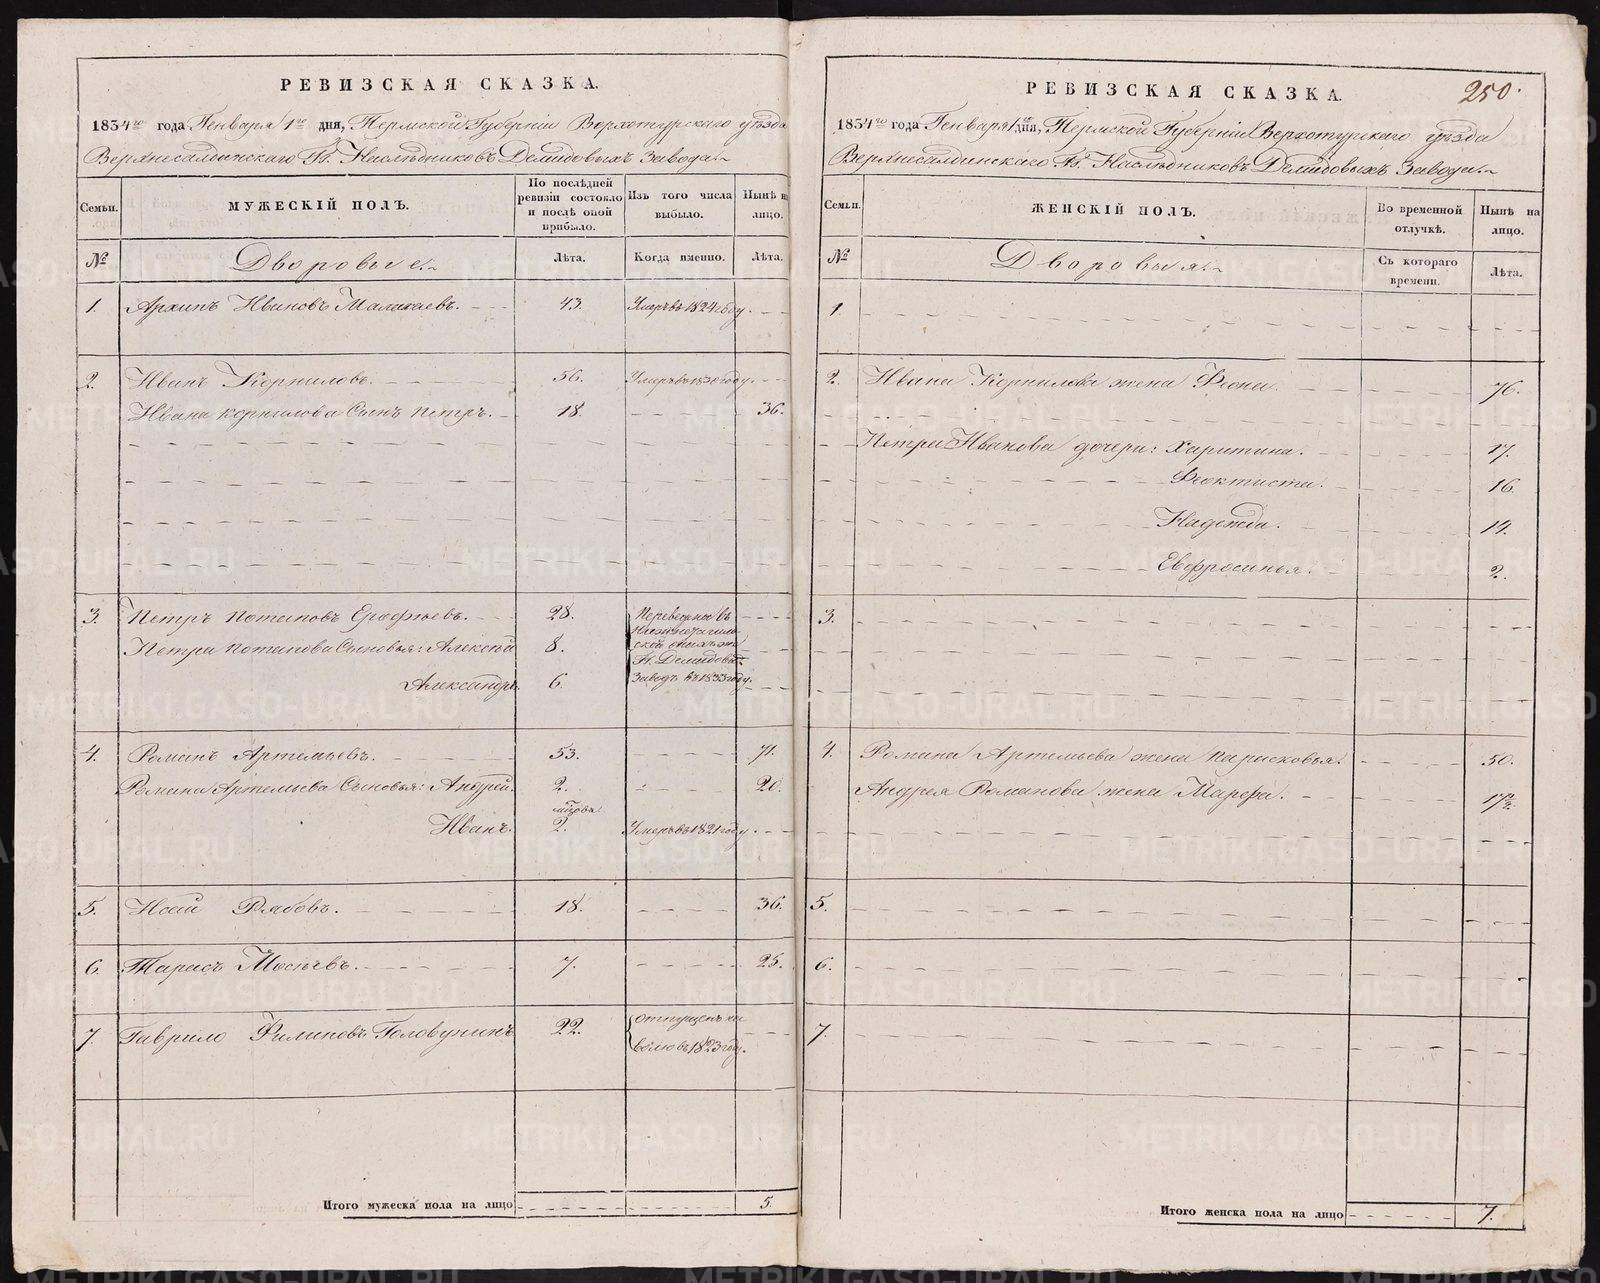 РЕВИЗСКАЯ СКАЗКА.
1834го года Генваря 1го дня, Пермской Губерніи Верхотурскаго уѣзда
Верхнесалдинскаго Гг. Наслѣдниковъ Демидовыхъ Завода.
Семьи.
МУЖЕСКІЙ ПОЛЪ.
По послѣдней ревизіи состояло и послѣ оной прибыло.
Изъ того числа выбыло.
Нынѣ на лицо.
№
Дворовые.
Лѣта.
Когда именно.
Лѣта.
1. Архипъ Ивановъ Малахаевъ. 43. Умеръ въ 1824 году.
2. Иванъ Корниловъ. 56. Умеръ въ 1830 году.
Ивана Корнилова Сынъ Петръ. 18. 36.
3. Петръ Потаповъ Ерофѣевъ. 28. Переведенъ въ
Нижнотагиль-
ской
Петра Потапова Сыновья: Алексѣй 8.
Гг. Демидовыхъ
Александръ. 6. Заводъ въ 1833 году.
4. Романъ Артемьевъ. 53. 71.
Романа Артемьева Сыновья: Андрей. 2. 20.
Иванъ. 2. Умеръ въ 1821 году.
5. Исай Рябовъ. 18. 36.
6. Тарасъ Мосѣевъ. 7. 25.
7. Гаврило Филиповъ Головунинъ 22. отпущенъ на
волю въ 1823 году.
Итого мужеска пола на лицо 5.
250.
РЕВИЗСКАЯ СКАЗКА.
1834го года Генваря 1го дня, Пермской Губерніи Верхотурскаго уѣзда
Верхнесалдинскаго Гг. Наслѣдниковъ Демидовыхъ Завода.
Семьи.
ЖЕНСКІЙ ПОЛЪ.
Во временной отлучкѣ.
Нынѣ на лицо.
№
Дворовыя.
Съ котораго времени.
Лѣта.
1.
2. Ивана Корнилова жена Феона. 76.
Петра Иванова дочери: Харитина. 17.
Феоктиста. 16.
Надежда. 14.
Евфросинья. 2.
3.
4. Романа Артемьева жена Парасковья. 50.
Андрея Романова жена Марфа. 17½.
5.
6.
7.
Итого женска пола на лицо 7.
METRIKI.GASO-URAL.RU